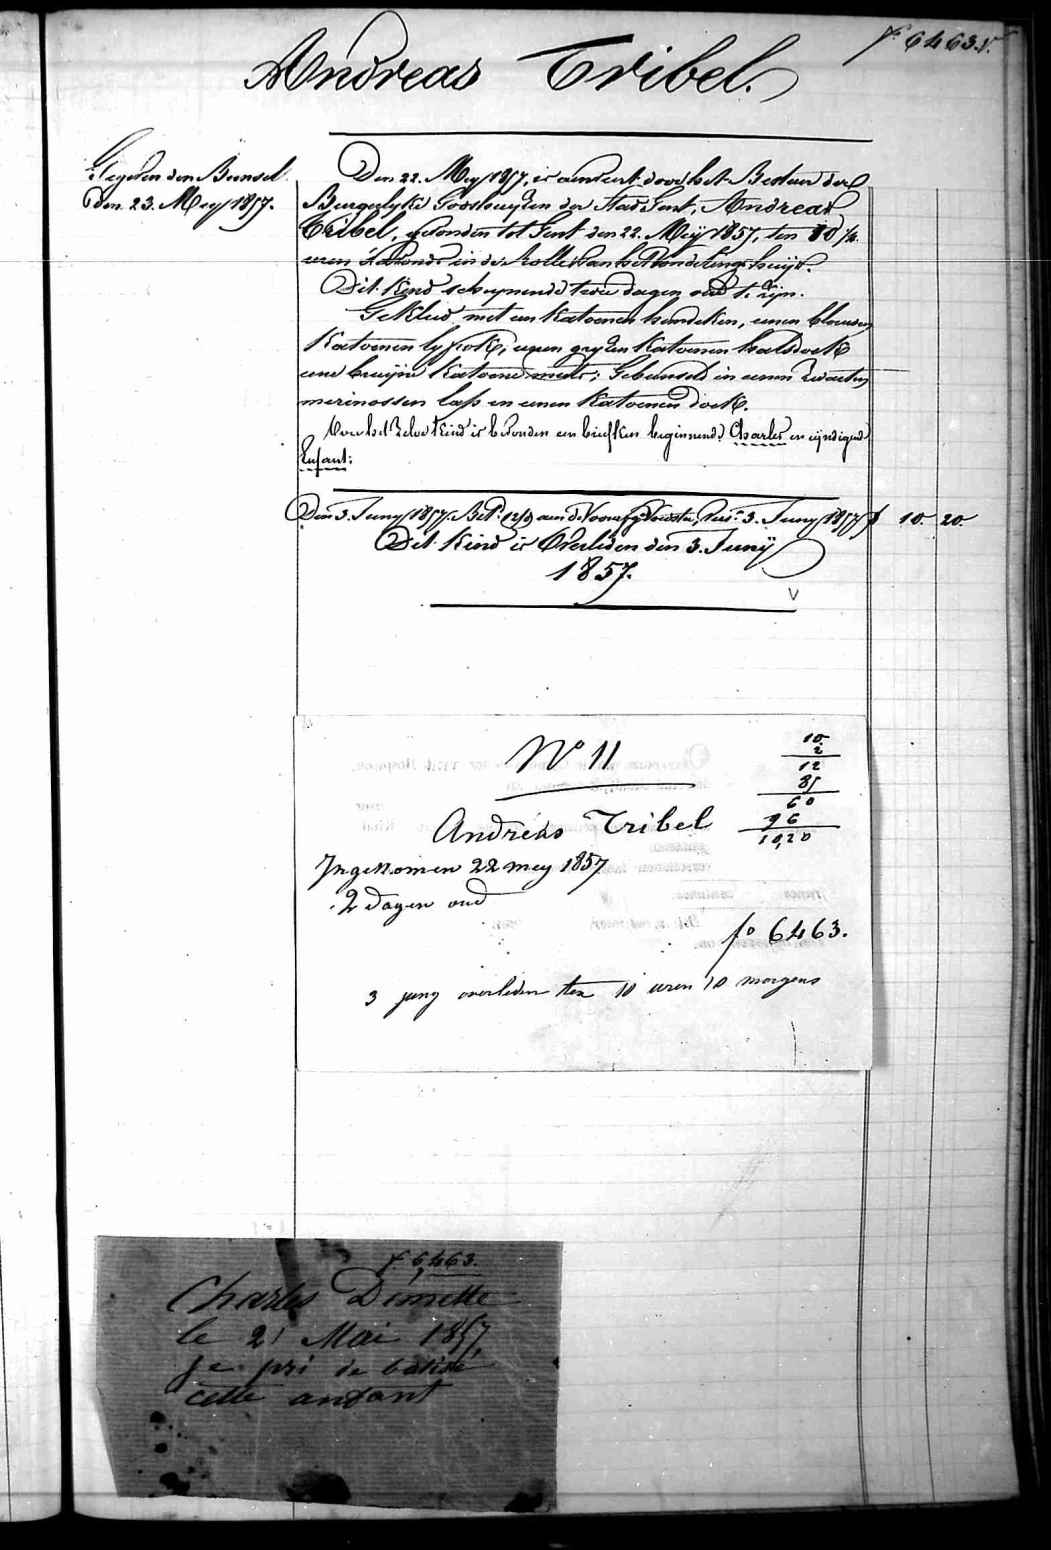 f° 6463.v.
Andreas Tribel.
Gegeven den Bunsel
den 23. Mey 1857.
Den 22. Mey 1857, is aenveert door het Bestuer der
Burgerlyke Godshuyzen der Stad Gent, Andreas
Tribel, gevonden tot Gent den 22. Meÿ 1857, ten 10 1/4
uren 's avonds in de Rolle van het Vondelingshuijs.
Dit kind schynende twee dagen oud te zijn.
Gekleed met een katoenen hemdeken, eenen blauwen
katoenen lyfrok, eenen gryzen katoenen halsdoek
eene bruyne katoene muts; Gebunseld in eenen zwarten
merinossen lap en eenen katoenen doek.
Voor het zelve kind is bevonden een briefken beginnende Charles en eyndigende
Enfant.
Den 3. Juny 1857. Bet. 12/d aen de Voorzg Voedster, 3. Juny 1857 f 10. 20.
Dit kind is Overleden den 3. Junÿ
1857.
V
N° 11
10
2
12
85
60
96
10,20
Andreas Tribel
Ingekomen 22 mey 1857
2 dagen oud
f° 6463.
3 juny overleden ten 10 uren 10 morgens
f° 6,463.
Charles Demette
le 21 Mai 1857,
je pri de batisé
cette anfant